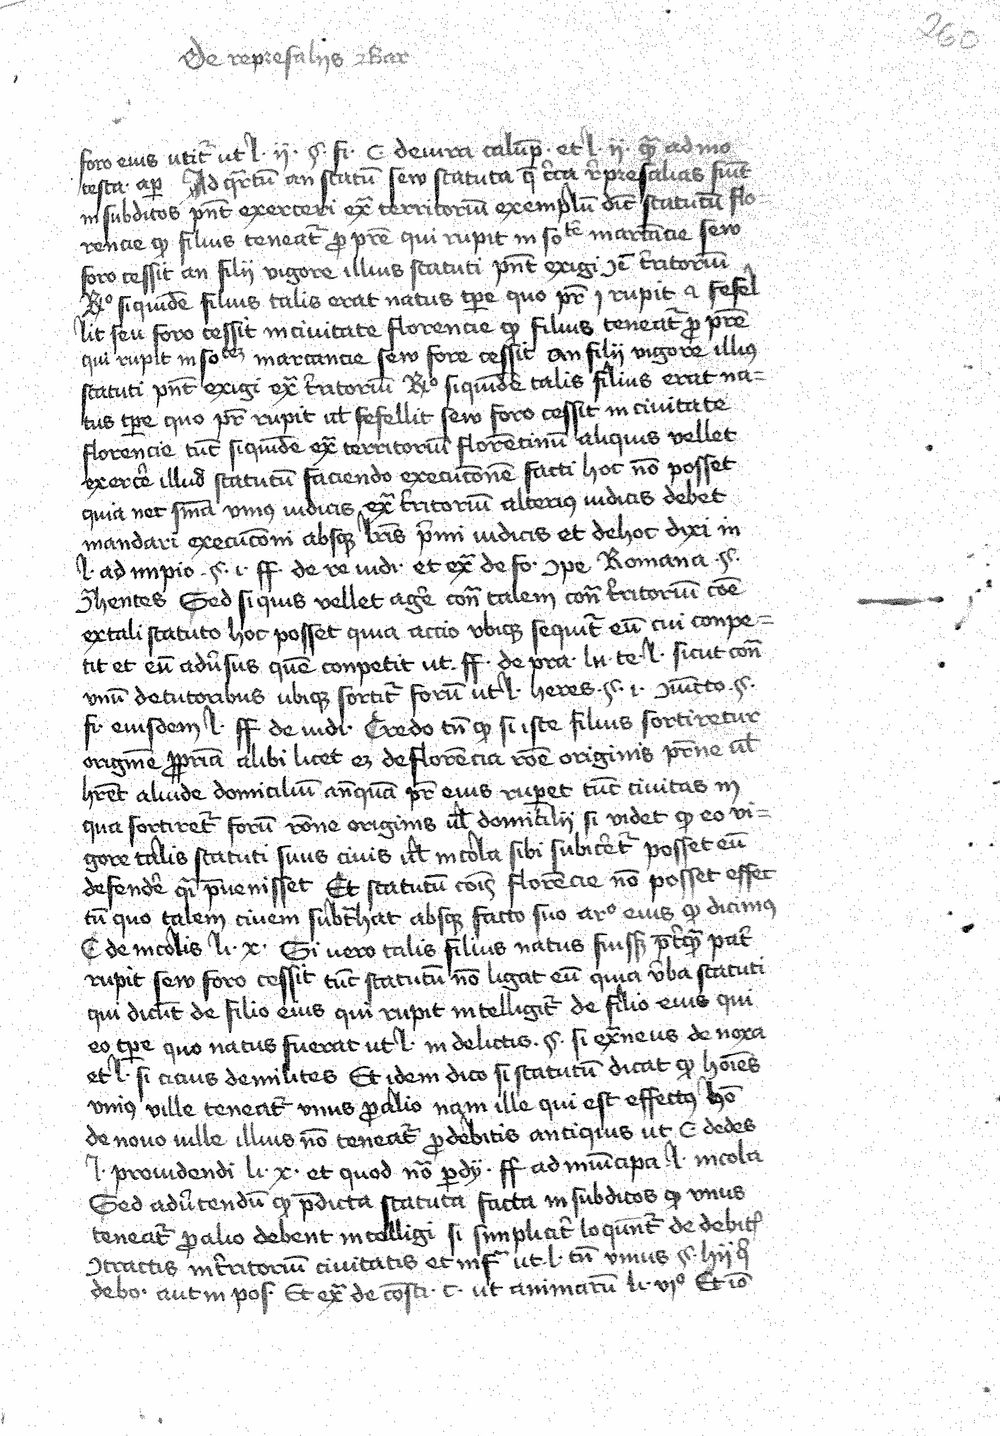 260
De represaliis Bar
foro eius utit̄ ut l. ii. §. fi. C de iura calūp. et l. ii. q̄ ad mo
testa. ap̄ Ad q̄rtū an statū sew statuta q̄ c̄ca rp̄resalias fiūt
in subditos pn̄t exerceri ex̄ territoriū exemplū dic̄ statutū flo-
rencie qp filius teneat̄ p̄ pr̄e qui rupit in sotē marcācie sew
foro cessit an filii vigore illius statuti pn̄t exigi ꝯē t̄ritoriū
R̄o siquidē filius talis erat natus tp̄e quo pr̄ rupit fefel
lit seu foro cessit in civitate florencie qp filius teneat̄ p̄ pr̄e
qui rupit in sotez marcancie sew fore cessit an filii vigore illiꝰ
statuti pn̄t exigi ex̄ t̄ritoriū R̄o siquidē talis filius erat na=
tus tp̄e quo pr̄ rupit ul̄ fefellit sew foro cessit in civitate
florencie tūc siquidē ex̄ territoriū florētinū aliquis vellet
exerc̄e illud statutū faciendo execucōnē facti hoc nō posset
quia nec sn̄ia vniꝰ iudicis ex̄ t̄ritoriū alteriꝰ iudicis debet
mandari execucōni absqꝫ lr̄is p̄mi iudicis et de hoc dixi in
l. ad inpio. §. i. ff. de re iudi. et ex̄ de fo. ꝯpe Romana §.
ꝯ̄hentes Sed si quis vellet aḡe con̄ talem con̄ t̄ritoriū cōe
ex tali statuto hoc posset quia accio vbiqꝫ sequit̄ eū cui conpe=
tit et eū adv̄sus quē conpetit ut. ff. de pra. l. sicut con̄
vnū de tutoribus ubiqꝫ sortit̄ forū ut l. heres. §. i. §.
fi. eiusdem l. ff de iudi. Credo tn̄ qp si iste filius sortiretur
originē pp̄riā alibi licet ez de florēcia rōe originis pr̄ne ul̄
hr̄et aliude domiciliū an̄quā pr̄ eius rup̄et tūc civitas in
qua sortiret̄ forū rōne originis ul̄ domicilii si videt qp eo vi=
gore talis statuti suus civis ul̄ incola sibi subic̄et̄ posset eū
defend̄e p̄uenisset Et statutū cōis florēcie nō posset effec
tū quo talem civem subt̄hat absqꝫ facto suo aro eius qp dicimꝰ
C de incolis li. x. Si vero talis filius natus fuiss̄ p̄tq̄ pat̄
rupit sew foro cessit tūc statutū nō ligat eū quia v̄ba statuti
qui dicūt de filio eius qui rupit intelligit̄ de filio eius qui
eo tp̄e quo natus fuerat ut l. in delictis. §. si ex̄neus de noxa
et l. si cuius de milites Et idem dico si statutū dicat qp hoīes
vniꝰ ville teneat̄ vnus p̄ alio nam ille qui est effectꝰ hō
de novo ville illius nō teneat̄ p̄ debitis antiquis ut C de des
l. providendi li. x. et quod nō p̄dy. ff ad mūicipa l. incola
Sed adv̄tendū qp p̄dicta statuta facta in subditos qp vnus
teneat̄ p̄ alio debent intelligi si simplicit̄ loqūnt̄ de debit̄
ꝯtractis in t̄ritoriū civitatis et inf̄ ut. l. tn̄ vnius §.
debo. aut in pos. Et ex̄ de cōsti. c. ut animarū li. vio Et iō